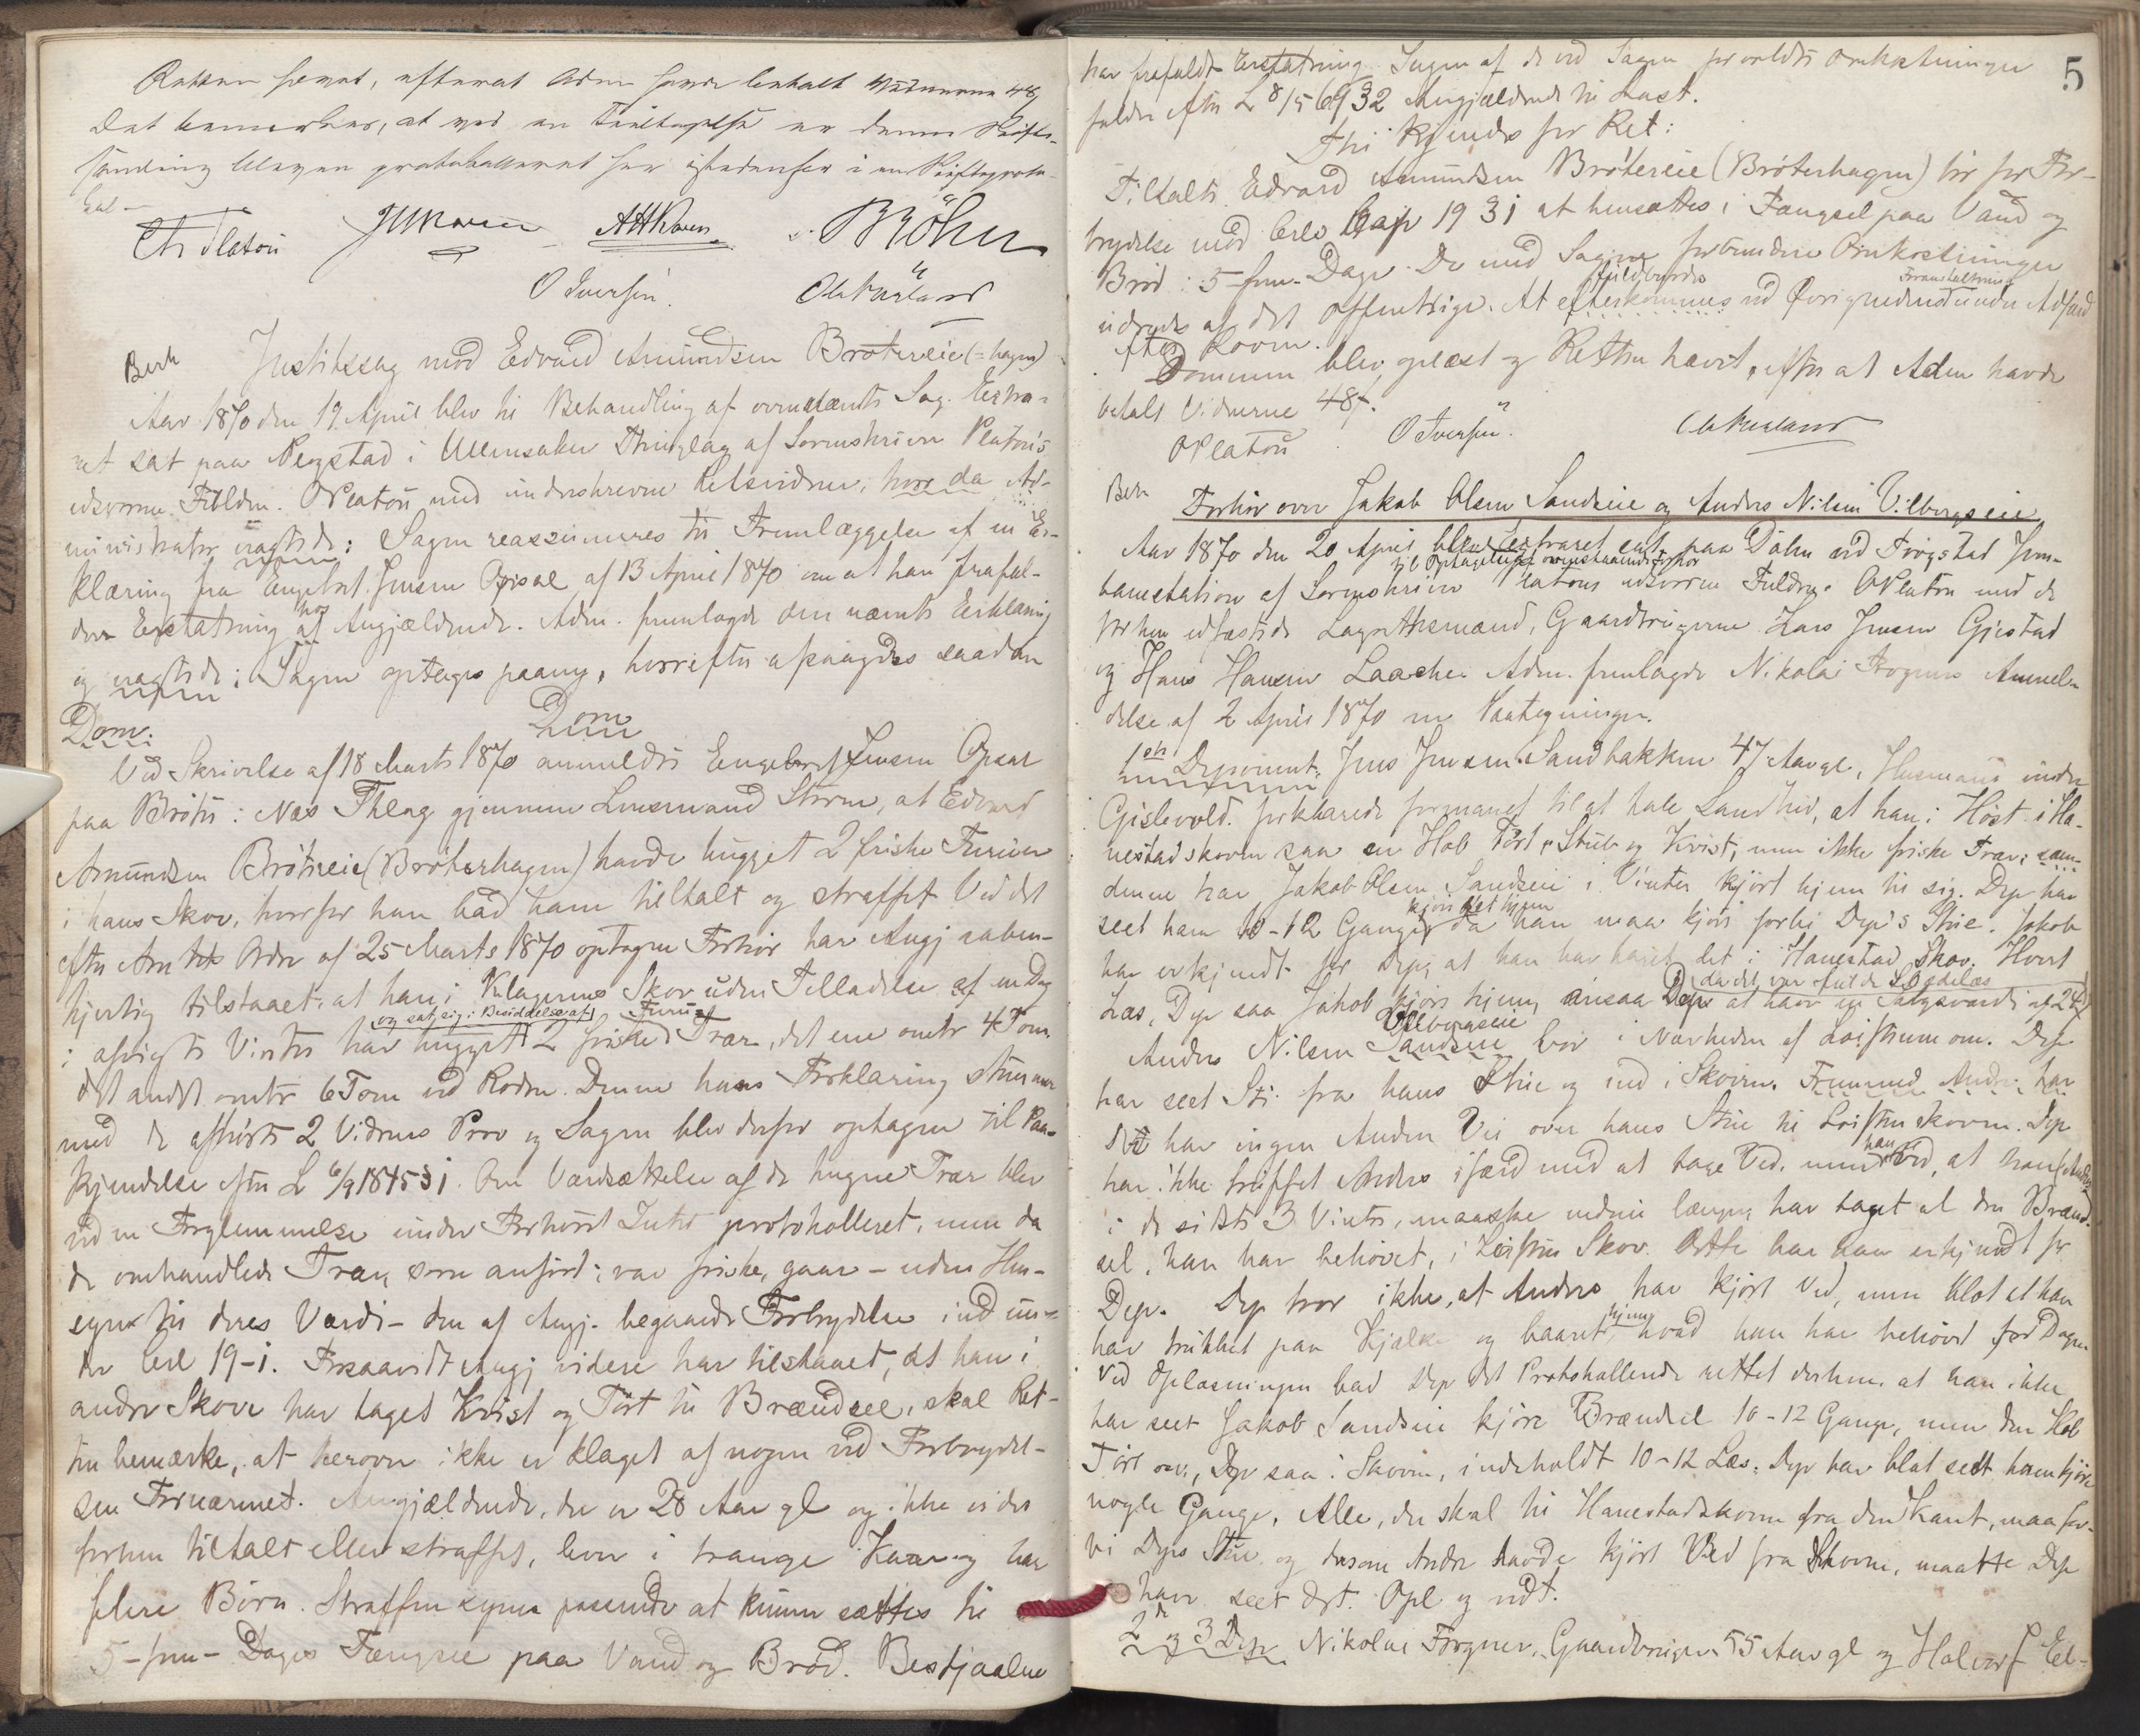 Retten hævet, efterat Adm havde betalt Vidnerne 48
Det bemærkes, at ved en Feiltagelse er denne Skifte-
samling bleven protokolleret her istedenfor i en Skifteproto-
kol -
O Iversen. Ole Rusland
Berh Justitssag mod Edvard Amundsen Brøtereie (=hagen)
Aar 1870 den 19 April blev til Behandling af ovennævnte Sag Extra-
ret sat paa Ringstad i Ullensaker Thinglag af Sorenskriver Platou's
edsvorne Fuldm. OPlatou med underskrevne Retsvidner; hvor da Ad-
ministrator ragtede: Sagen reassumeres til Fremlæggelse af en Er-
klæring fra Engebret Jensen Opsal af 13 April 1870 om at han frafal-
der Erstatning hos Angjældende. Adm. fremlagde den nævnte Erklæring
og ragtede; Sagen optages paany, hvorefter afsagdes saadan
Dom. Dom
Ved Skrivelse af 18 Marts 1870 anmeldte Engebret Jensen Opsal
paa Brøter i Næs Thlag gjennem Lensmand Storm, at Edvard
Amundsen Brøtereie (Brøterhagen) havde hugget 2 friske Furuer
i hans Skov, hvorfor han bad ham tiltalt og straffet. Ved det
efter Amtets Ordre af 25 Marts 1870 optagne Forhør har Angj aaben-
hjertig tilstaaet: at han i Klagerens Skov uden Tilladelse af en Dag
og sat sig i Besiddelse af Furu=
i afvigte Vinter har hugget 2 friske Trær, det ene omtr 4 Tom.
det andet omtr 6 Tom ved Roden. Denne hans Forklaring stemmer
med de afhørte 2 Vidners Prov og Sagen blev derfor optagen til Paa-
kjendelse efter L 6/9 1845 § 1. Om Værdsættelse af de hugne Trær blev
ved en Forglemmelse under Forhøret Intet protokolleret, men da
de omhandlede Trær, som anført, var friske, gaar - uden Hen-
syn til deres Værdi - den af Angj. begaaede Forbrydelse ind un-
der Crl 19-1. Forsaavidt Angj videre har tilstaaet, at han i
andre Skove har taget Kvist og Tørt til Brændsel, skal Ret-
ten bemærke, at herover ikke er klaget af nogen ved Forbrydel-
sen Fornærmet. Angjældende, der er 28 Aar gl og ikke vides
forhen tiltalt eller straffet, lever i trange Kaar og har
flere Børn. Straffen synes passende at kunne sættes til
5 - fem - Dages Fængsel paa Vand og Brød. Bestjaalne
5
har frafaldt Erstatning. Ingen af de ved Sagen forvoldte Omkostninger
falder efter L 8/5 69 § 32 Angjældende til Last.
Thi kjendes for Ret:
Tiltalte Edvard Amundsen Brøtereie (Brøterhagen) bør for For-
brydelse mod Crls Cap 19 § 1 at hensættes i Fængsel paa Vand og
Brød i 5 - fem - Dage. De med Sagen forbundne Omkostninger
fuldbyrdes Foranstaltning
udredes af det Offentlige. At efterkommes ved Øvrighedens under Adfærd
efter Loven.
Dommen blev oplæst og Retten hævet, efter at Adm havde
betalt Vidnerne 48ß.
OPlatou O Iversen. Ole Rusland
Berh Forhør over Jakob Olsen Sandseie og Anders Nilsen Vilbergseie
Aar 1870 den 20 April blev Extraret sat paa Dahn ved Trøgstad Jern-
til Optagelse af ovenstaaende Forhør
banestation af Sorenskriver Platous edsvorne Fuldm. OPlatou med de
for ham edfæstede Lagrettesmænd, Gaardbrugerne Lars Jensen Gjestad
og Hans Hansen Laache. Adm. fremlagde Nikolai Frogners Anmel-
delse af 2 April 1870 m Paategninger.
1ste Deponent: Jens Jensen Sandbakken 47 Aar gl, Husmand under
Gislevold. forklarede formanet til at tale Sandhed, at han i Høst i Ha-
nestadskoven saa en Hob Tørt, Stub og Kvist, men ikke friske Trær; sam-
denne har Jakob Olsen Sandseie i Vinter kjørt hjem til sig. Dep har
kjøre det hjem
seet ham 10-12 Gange da han maa kjøre forbi Dep's Stue. Jakob
har erkjendt for Dep, at han har havt det i Hanestad Skov. Hvert
da det var fulde Slædelæs
Læs, Dep saa Jakob kjøre hjem, ansaa Dep at have en Salgsværdi af 24ß
Vilbergseie
Anders Nilsen Sandseie bor i Nærheden af Loistrumom. Dep
har seet Sti fra hans Stue og ind i Skoven. Fremmed Andre har
det har ingen Anden Vei over hans Stue til Loistrumskoven. Dep
har ikke truffet Anders ifærd med at tage Ved, men han ved, at han
i de sidste 3 Vintre, maaske endnu længer, har taget al den Brænd-
sel, han har behøvet, i Loistrum Skov. Dette har han erkjendt for
Dep. Dep tror ikke, at Anders har kjørt Ved, men blot at han
hjem
har trukket paa Kjælke og baaret hvad han har behøvet for Dagen
Ved Oplæsningen bad Dep det Protokollerede rettet derhen at han ikke
har seet Jakob Sandseie kjøre Brændsel 10-12 Gange, men den Hob
Tørt osv., Dep saa i Skoven, indeholdt 10-12 Læs; Dep har blot seet ham kjøre
nogle Gange. Alle, der skal til Hanestadskoven fra den Kant, maa for-
bi Deps Stue og dersom Andre havde kjørt Ved fra Skoven, maatte Dep
have seet det. Opl og vedt.
2de og 3 Dep Nikolai Frogner, Gaardbruger 55 Aar gl og Halvor El-